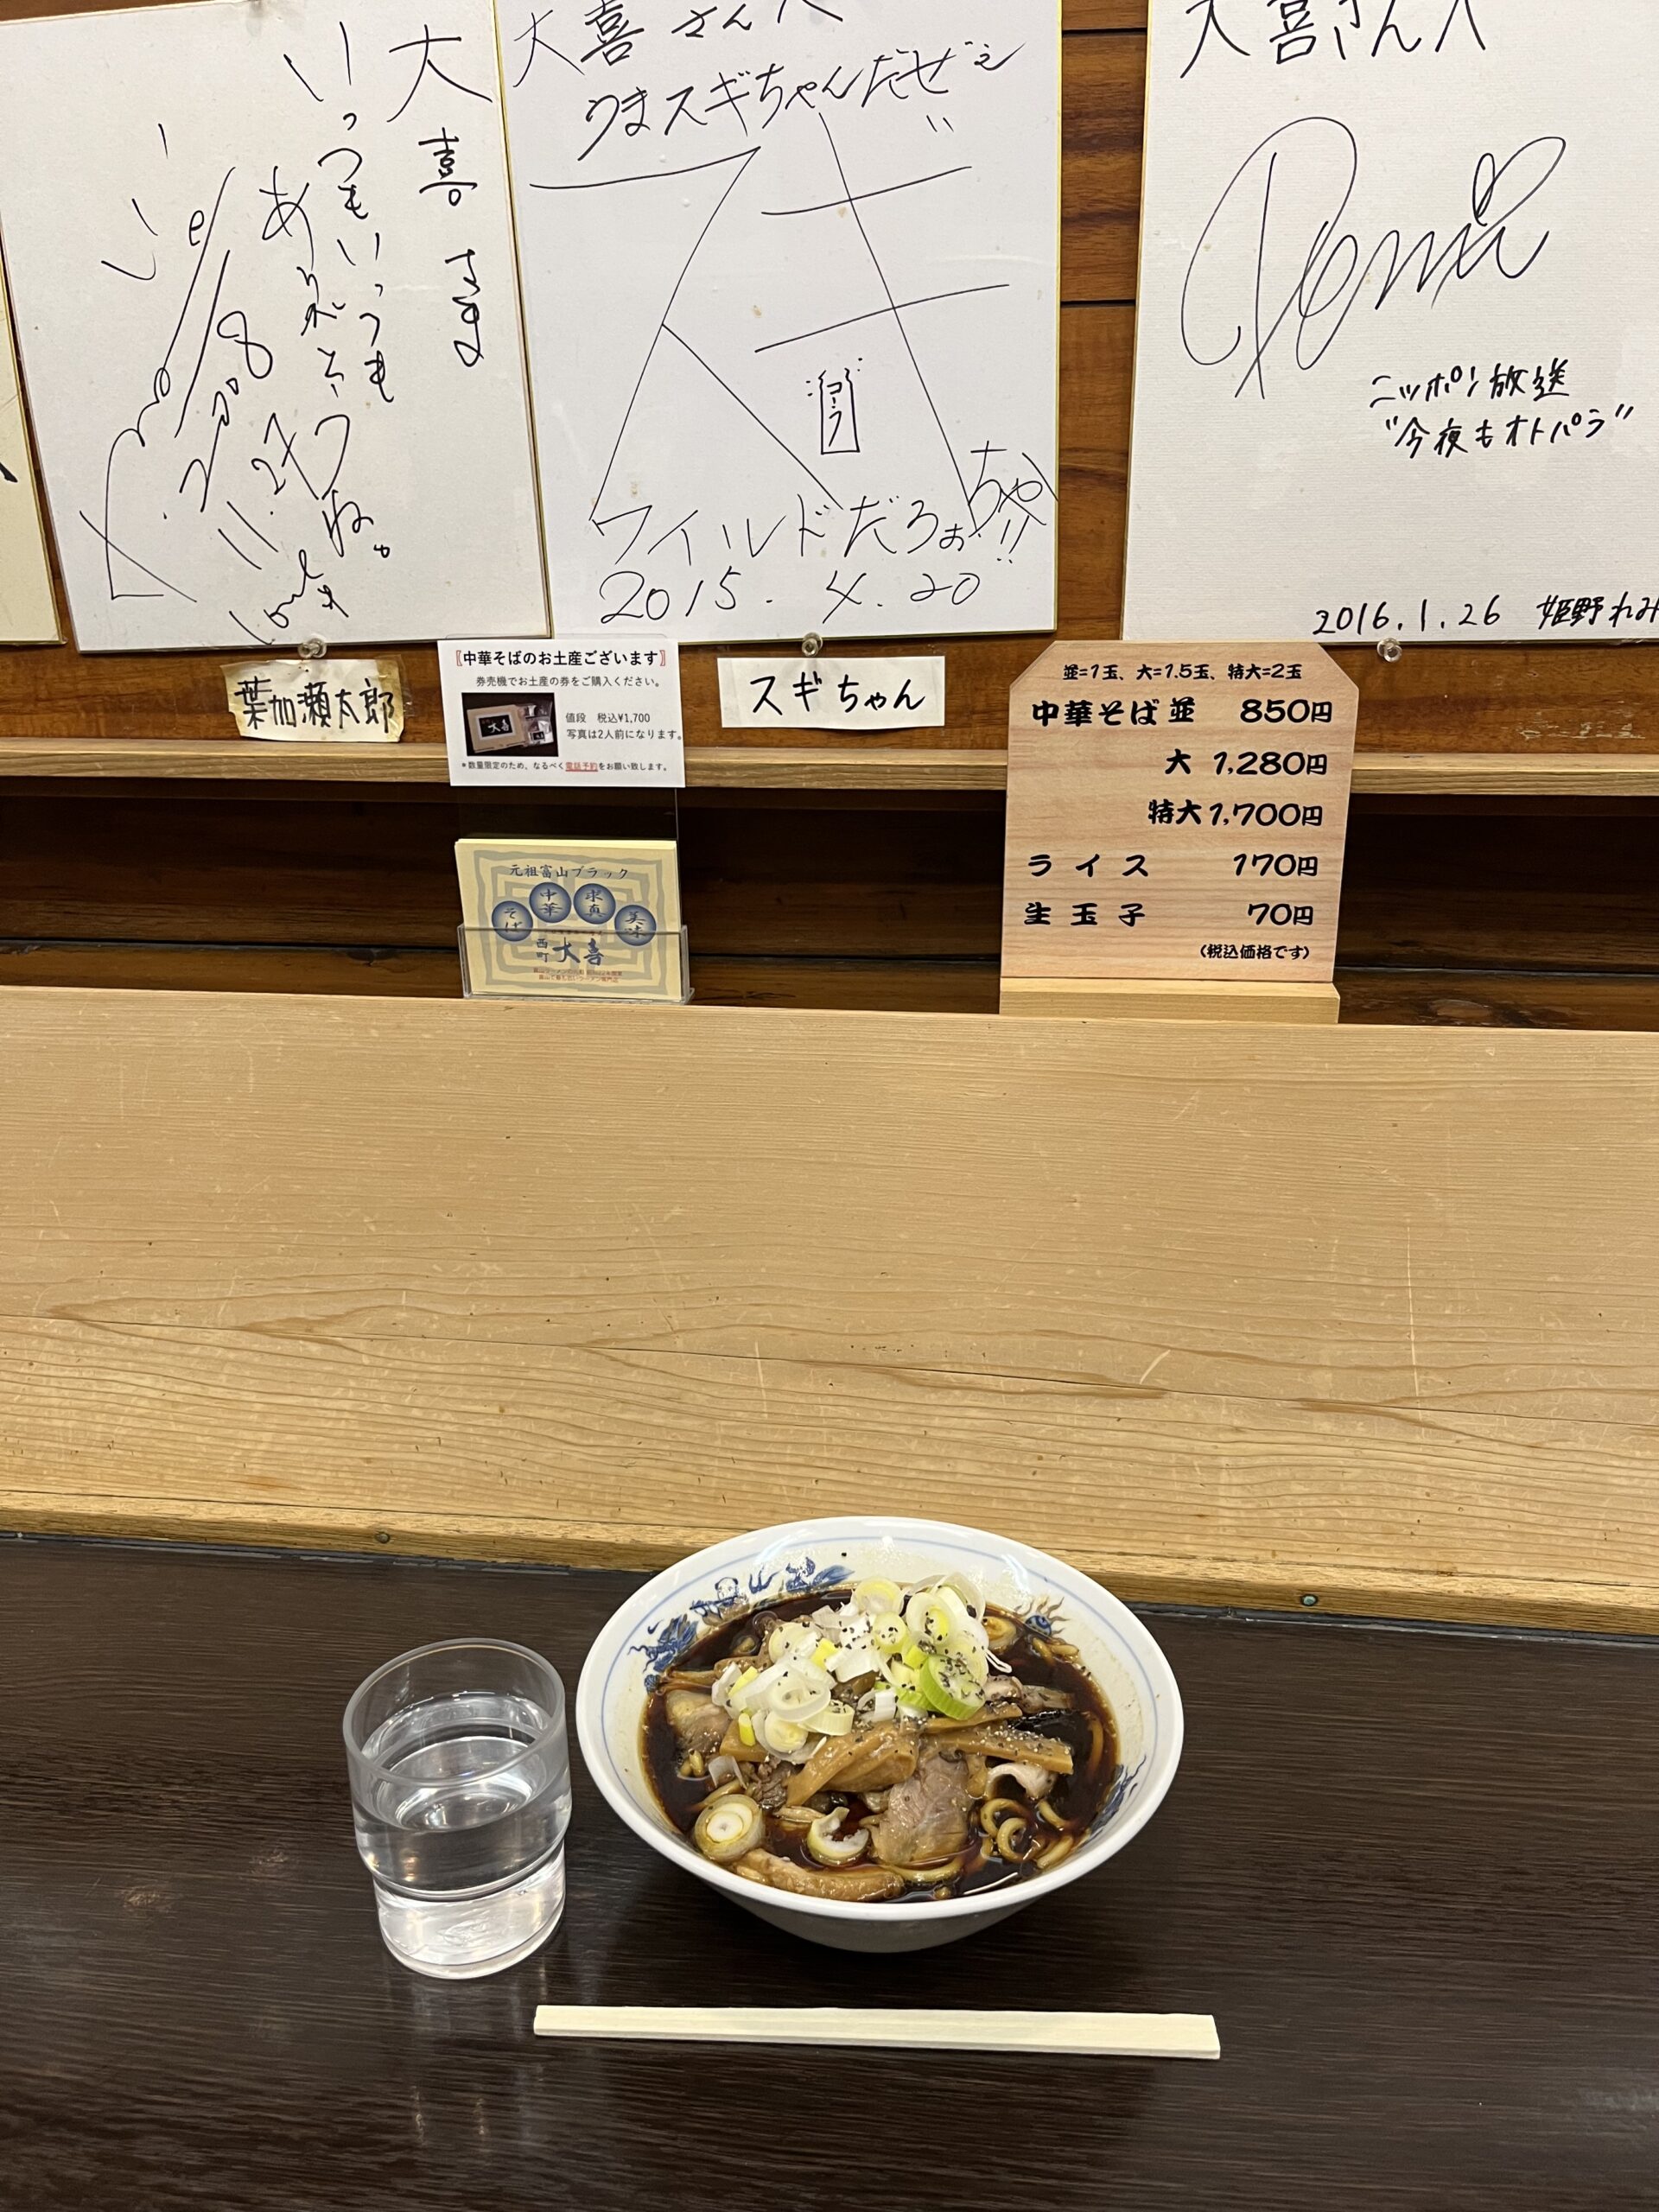 大喜さま
いっつもいっつも
ありがとうね。
2008
11.27
葉加瀬太郎
大喜さんへ
うまスギちゃんだぜぇ
スギちゃん
コーラ
ワイルドだろぉ!!
2015.4.20
スギちゃん
大喜さんへ
Remi
ニッポン放送
"今夜もオトパラ"
2016.1.26 姫野れみ
〖中華そばのお土産ございます〗
券売機でお土産の券をご購入ください。
大喜
値段 税込¥1,700
写真は2人前になります。
*数量限定のため、なるべく電話予約をお願い致します。
元祖富山ブラック
そば 中華 求真 美味
西町大喜
並=1玉、大=1.5玉、特大=2玉
中華そば 並 850円
大 1,280円
特大 1,700円
ライス 170円
生玉子 70円
(税込価格です)